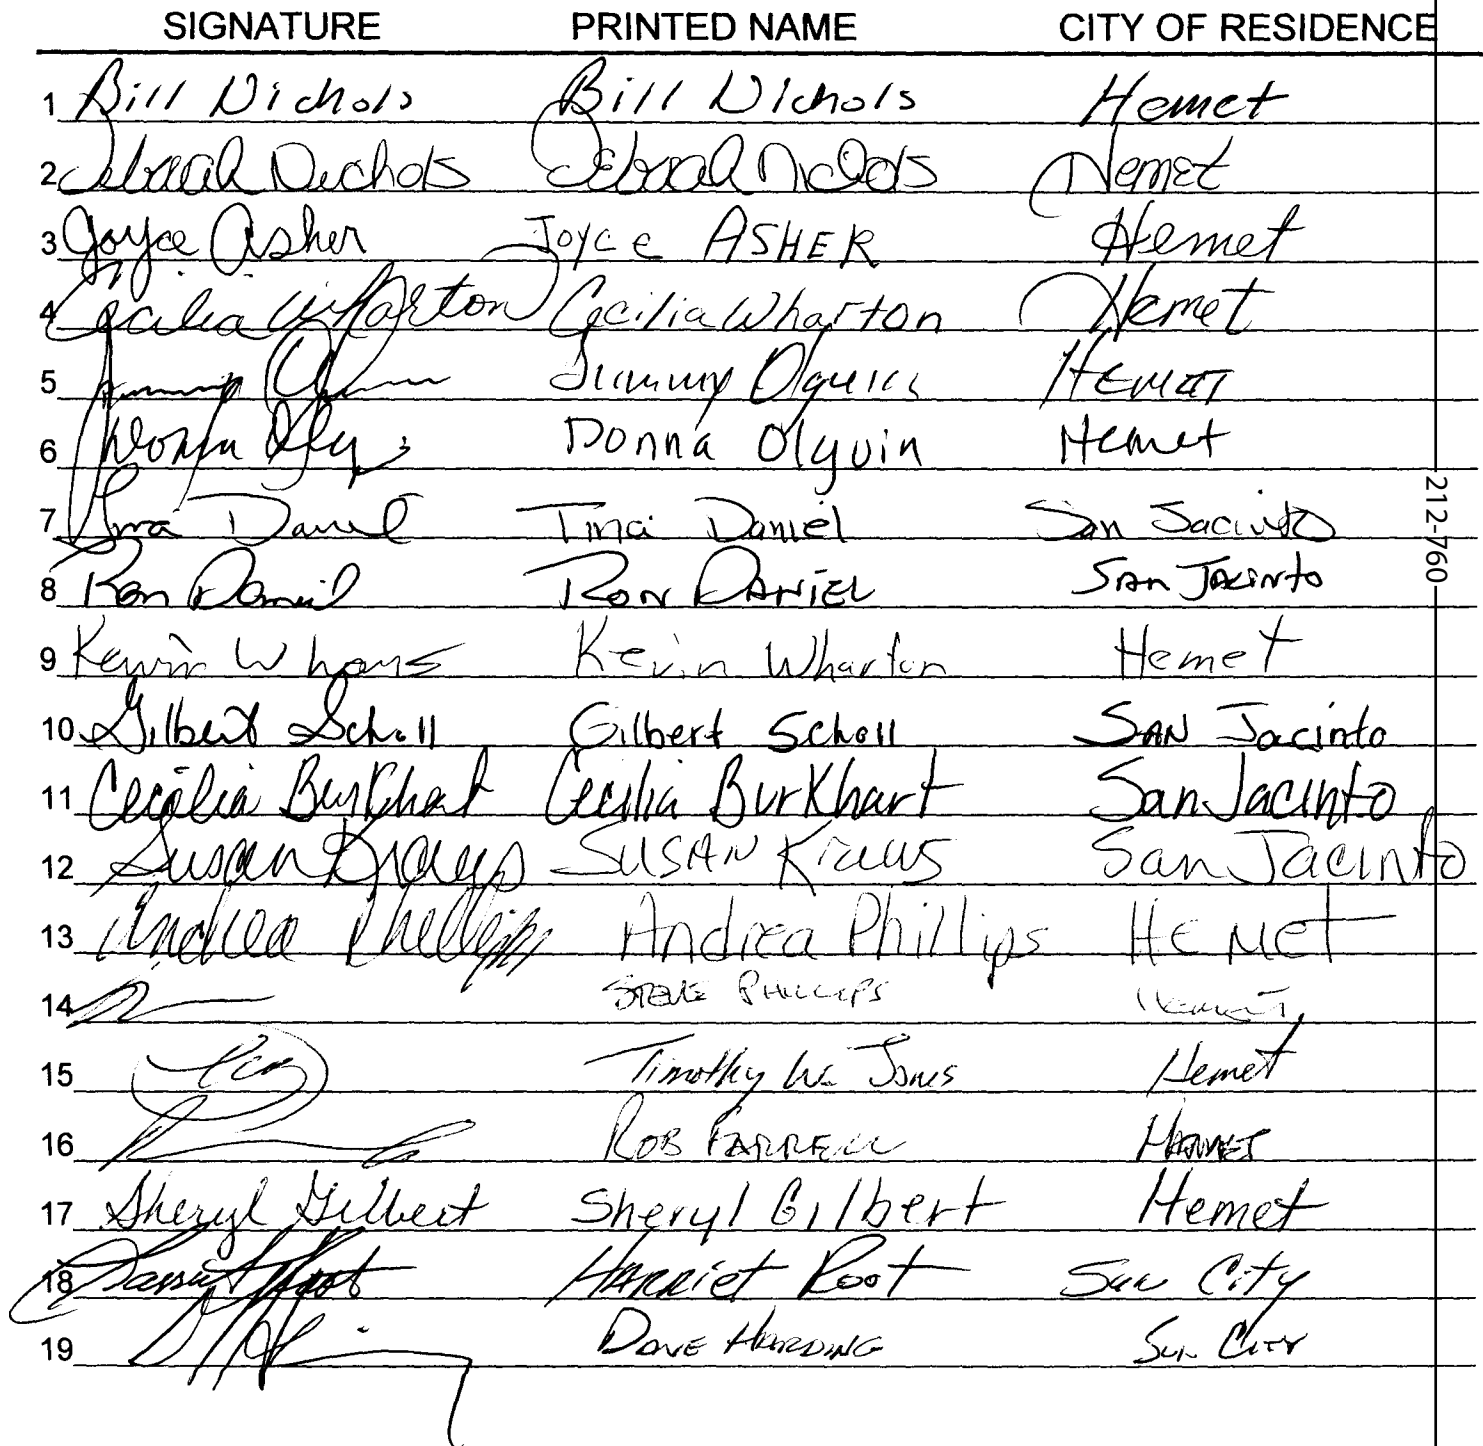 SIGNATURE PRINTED NAME CITY OF RESIDENCE
1 Bill Nichols Bill Nichols Hemet
2 Deborah Nichols Deborah Nichols Hemet
3 Joyce Asher Joyce ASHER Hemet
4 Cecilia Wharton Cecilia Wharton Hemet
5 Jimmy Jimmy Olguin HEMET
6 Donna Donna Olguin Hemet
7 Tina Daniel Tina Daniel San Jacinto
8 Ron Daniel RON DANIEL SAN JACINTO
9 Kevin Kevin Wharton Hemet
10 Gilbert Scholl Gilbert Scholl SAN Jacinto
11 Cecilia Burkhart Cecilia Burkhart San Jacinto
12 Susan Kraus SUSAN Kraus San Jacinto
13 Andrea Phillips Andrea Phillips HEMET
14 STEVE PHILLIPS Hemet
15 Timothy W. Jones Hemet
16 ROB FARRELL HEMET
17 Sheryl Gilbert Sheryl Gilbert Hemet
18 Harriet Root HARRIET Root Sun City
19 DAVE HARDING Sun City
212-760